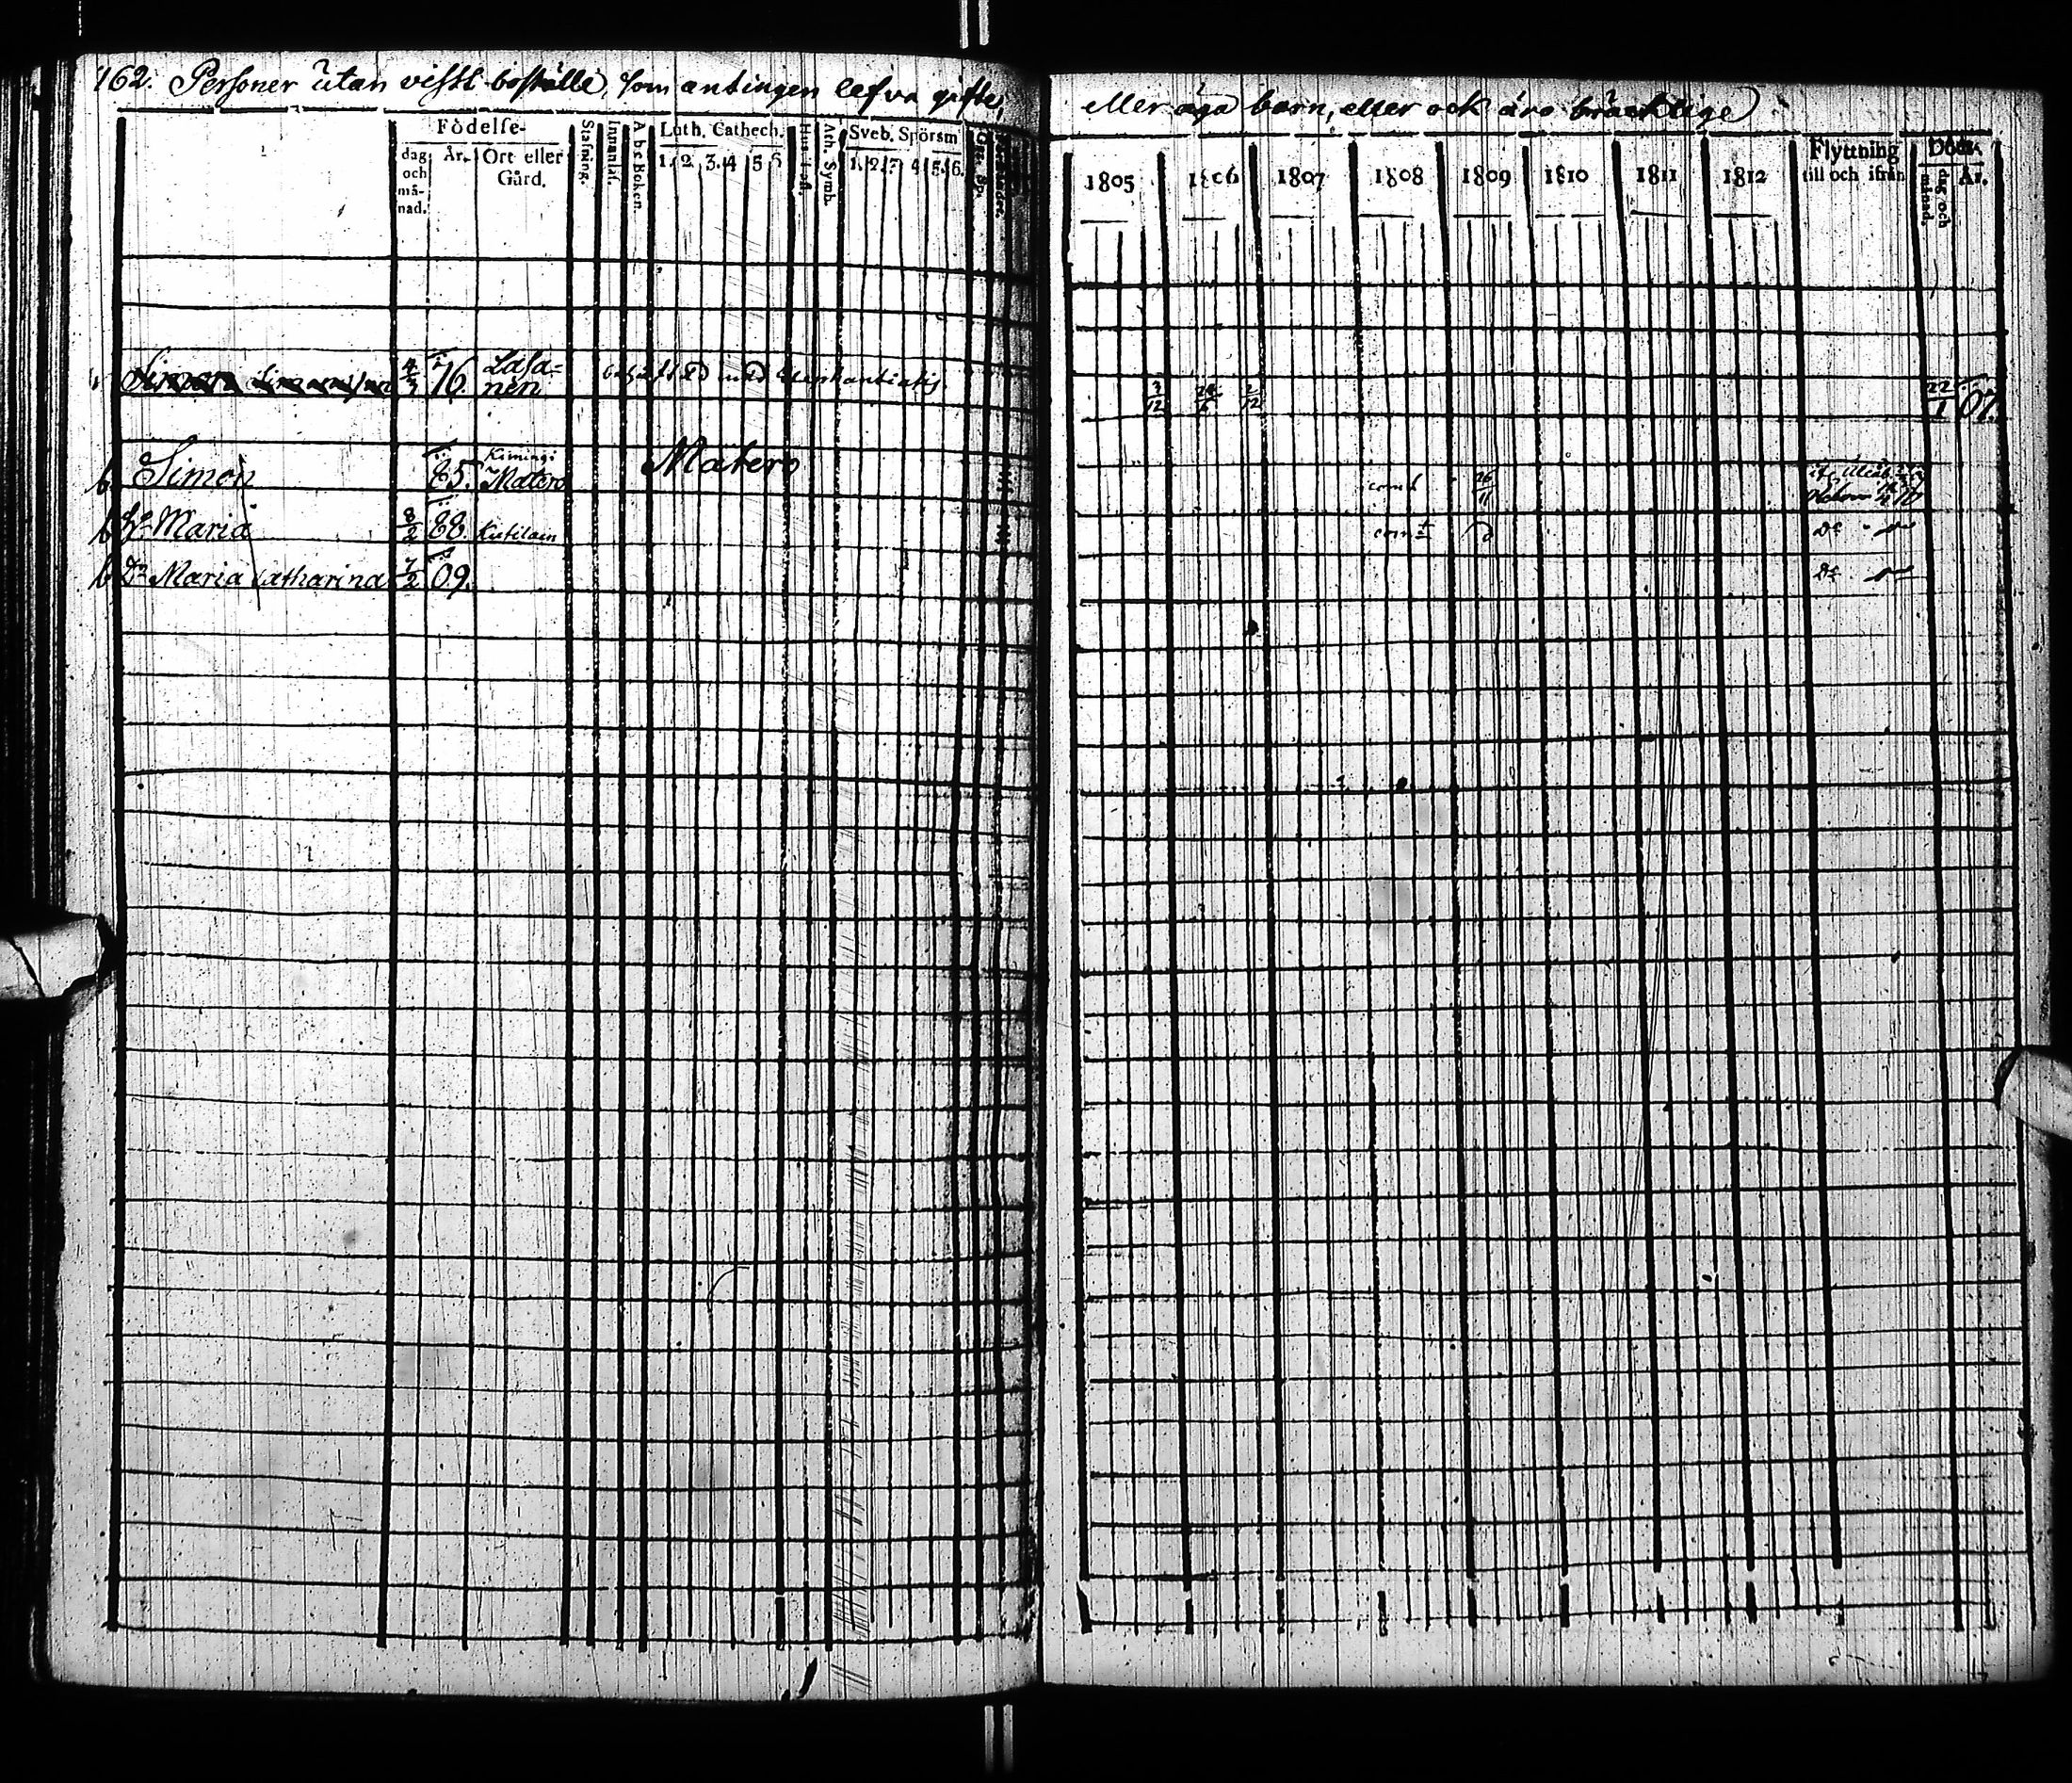 162. Personer utan visst boställe, som antingen lefva gifte,
eller äga barn, eller ock äro bräcklige
Födelse-
dag och må-nad.
År.
Ort eller Gård.
Stafning.
Innanläs.
A b c Boken.
Luth. Cathech.
1. 2. 3. 4 5 6
Hus-Tafl.
Ath. Symb.
Sveb. Spörsm
1. 2. 3. 4 5. 6.
1805 1806 1807 1808 1809 1810 1811 1812
Flyttning till och ifrån
Död.
dag och månad.
År.
Simon 4/3 76. Lasa=
nen
behäftad med Elephantiasis
3/12 2/12 22/1 07.
Matero
b Simon 85. Kiimingi
Matero
com 26/11
b H. Maria 8/2 88. Kutilain
com D:o
b D:r Maria Catharina 7/2 09.
D:o